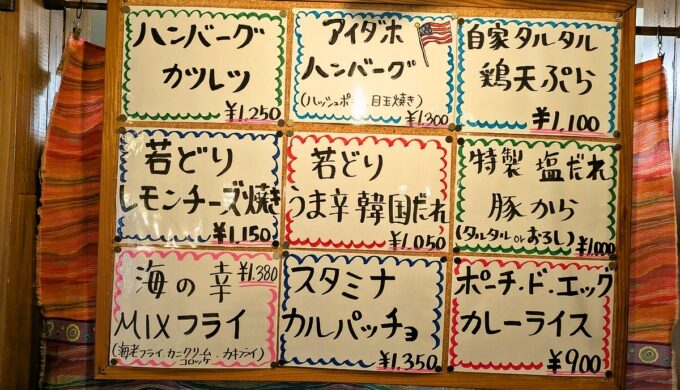 ハンバーグ
カツレツ
¥1,250
アイダホ
ハンバーグ
(ハッシュポテト.目玉焼き)
¥1,300
自家タルタル
鶏天ぷら
¥1,100
若どり
レモンチーズ焼き
¥1,150
若どり
うま辛韓国だれ
¥1,050
特製 塩だれ
豚から
(タルタル or おろし)
¥1,000
海の幸 ¥1,380
MIXフライ
(海老フライ.カニクリームコロッケ.カキフライ)
スタミナ
カルパッチョ
¥1,350
ポーチ・ド・エッグ
カレーライス
¥900